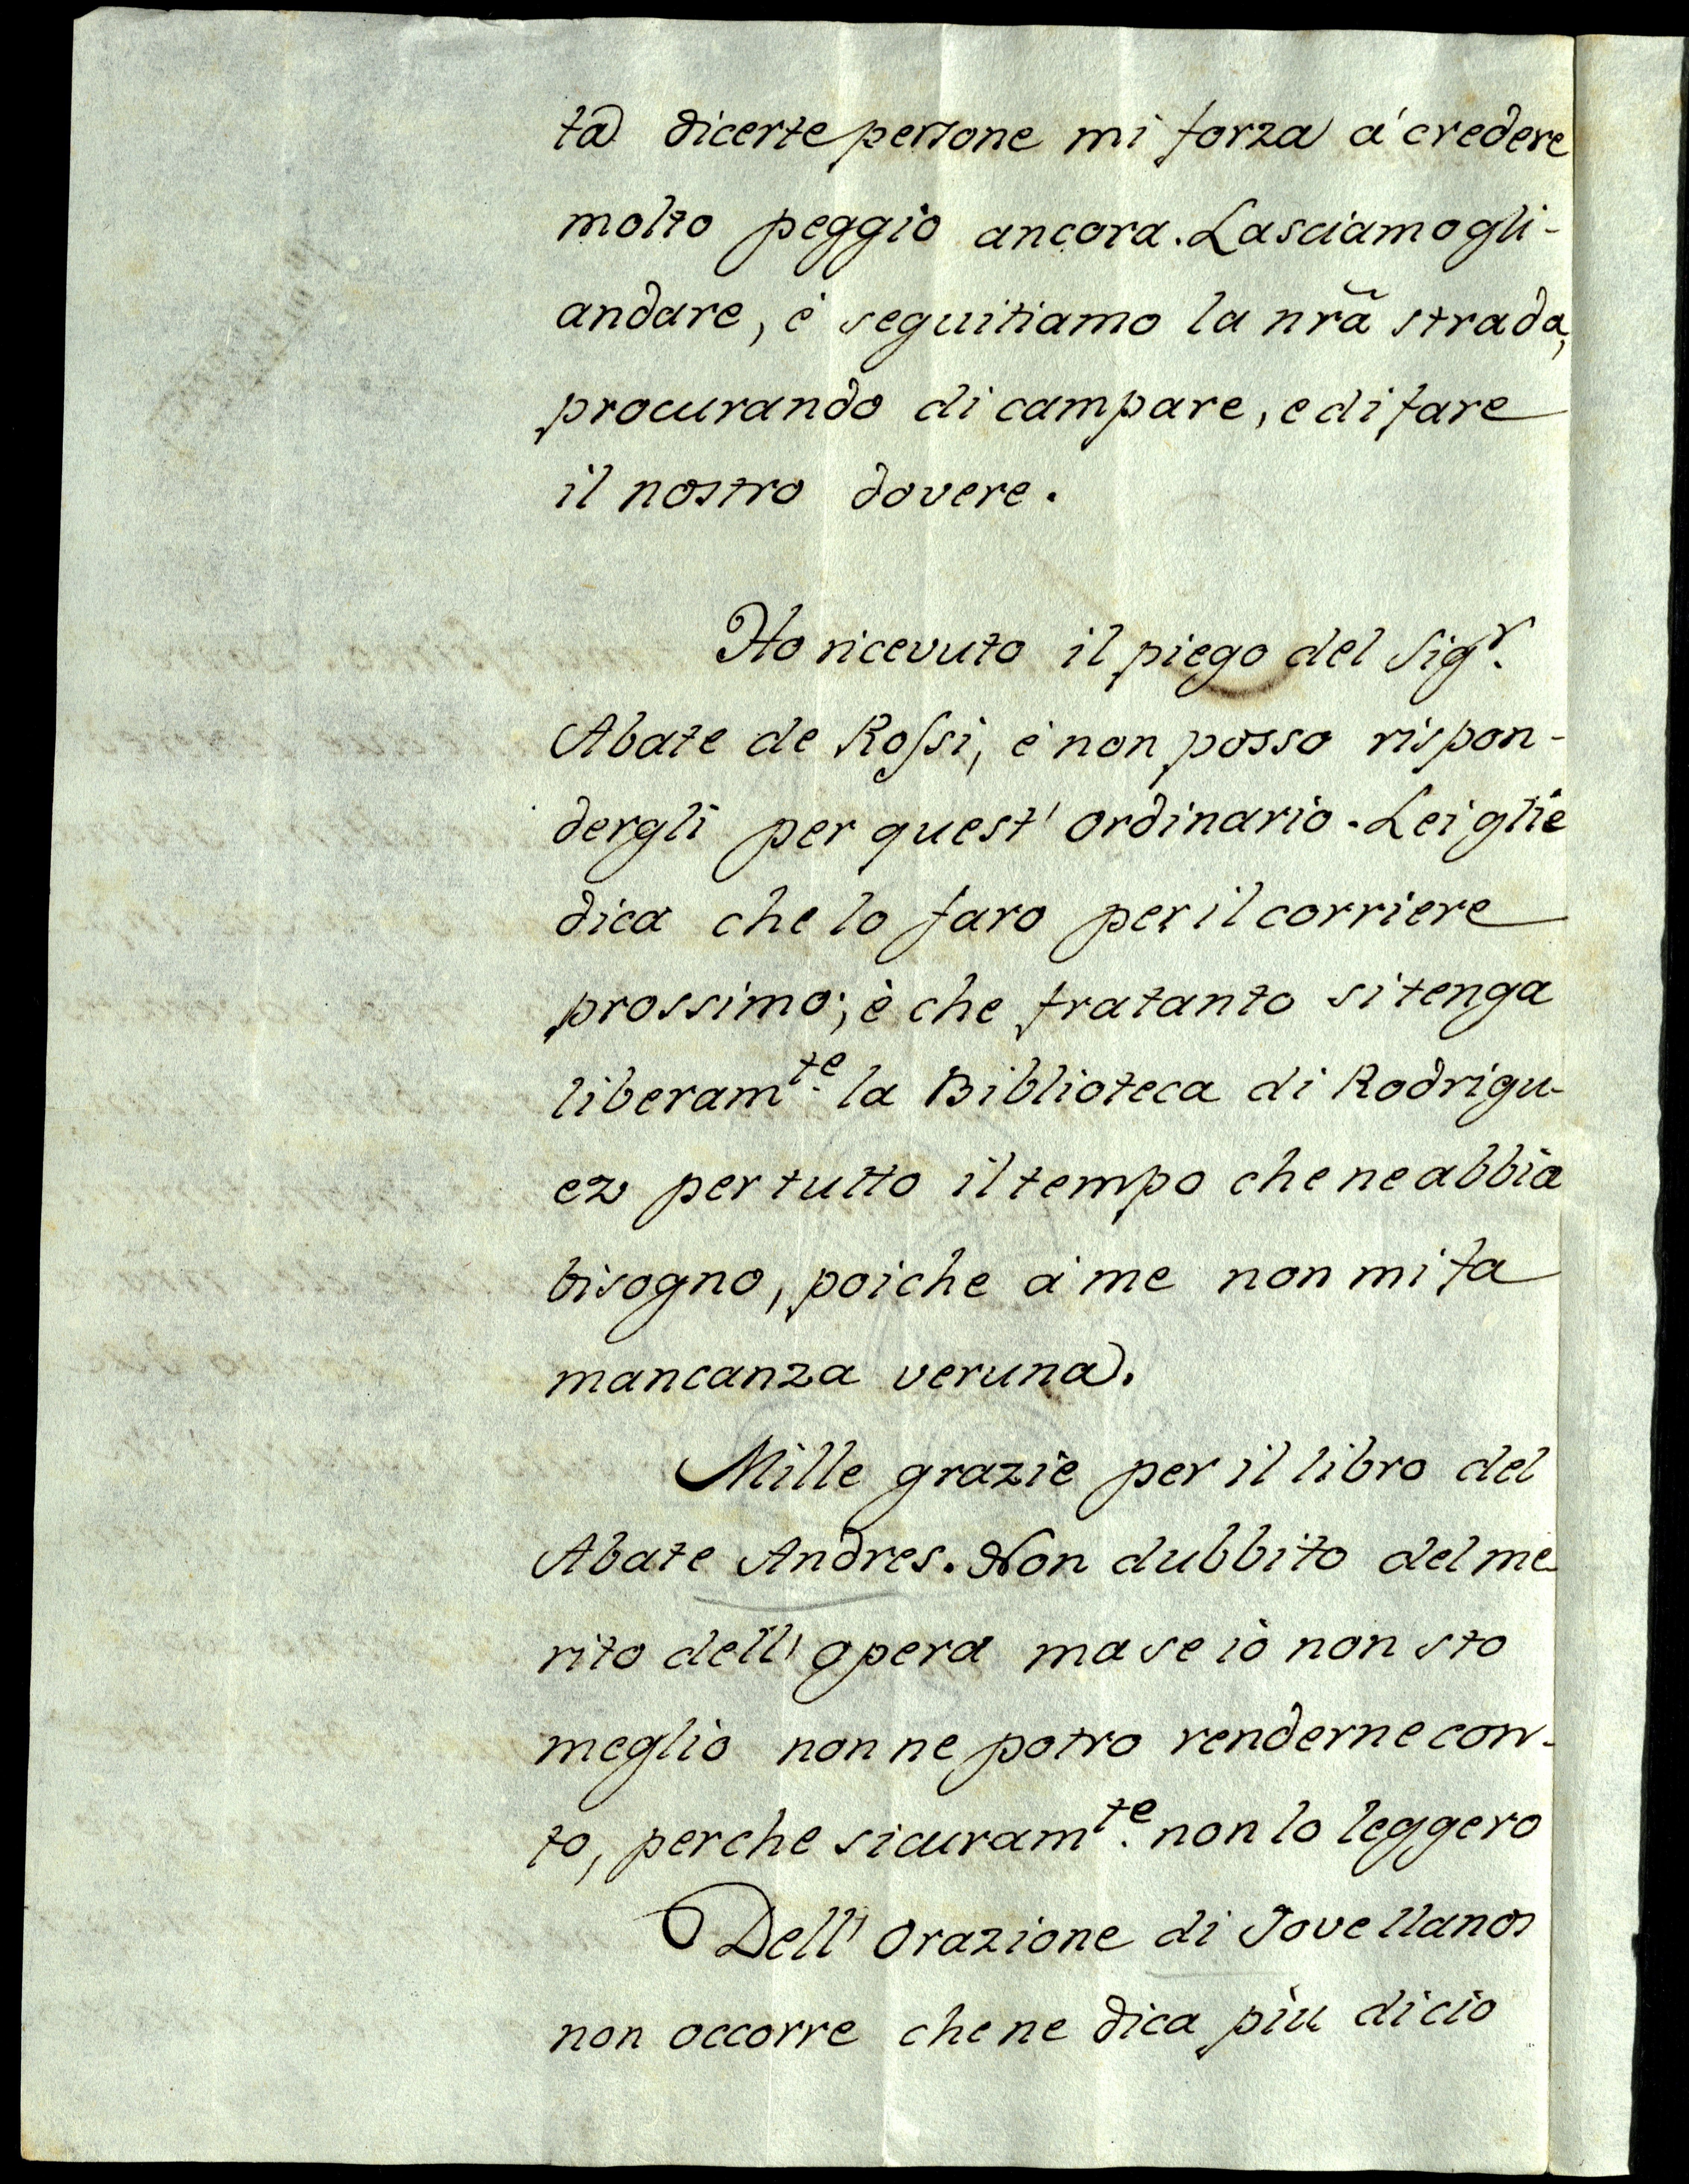 ta di certe persone mi forza á credere
molto peggio ancora. Lasciamogli-
andare, è seguitiamo la nr̃a strada,
procurando di campare, e di fare
il nostro dovere.
Ho ricevuto il piego del Sigr.
Abate de Rossi, è non posso rispon-
dergli per quest' ordinario. Lei glie
dica che lo faro per il corriere
prossimo; è che fratanto si tenga
liberamte. la Biblioteca di Rodrigu-
ez per tutto il tempo che ne abbia
bisogno, poiche á me non mi fa
mancanza veruna.
Mille grazie per il libro del
Abate Andres. Non dubbito del me-
rito dell' opera ma se io non sto
meglio non ne potro renderne con-
to, perche sicuramte. non lo leggero
Dell' Orazione di Jovellanos
non occorre che ne dica più di cio